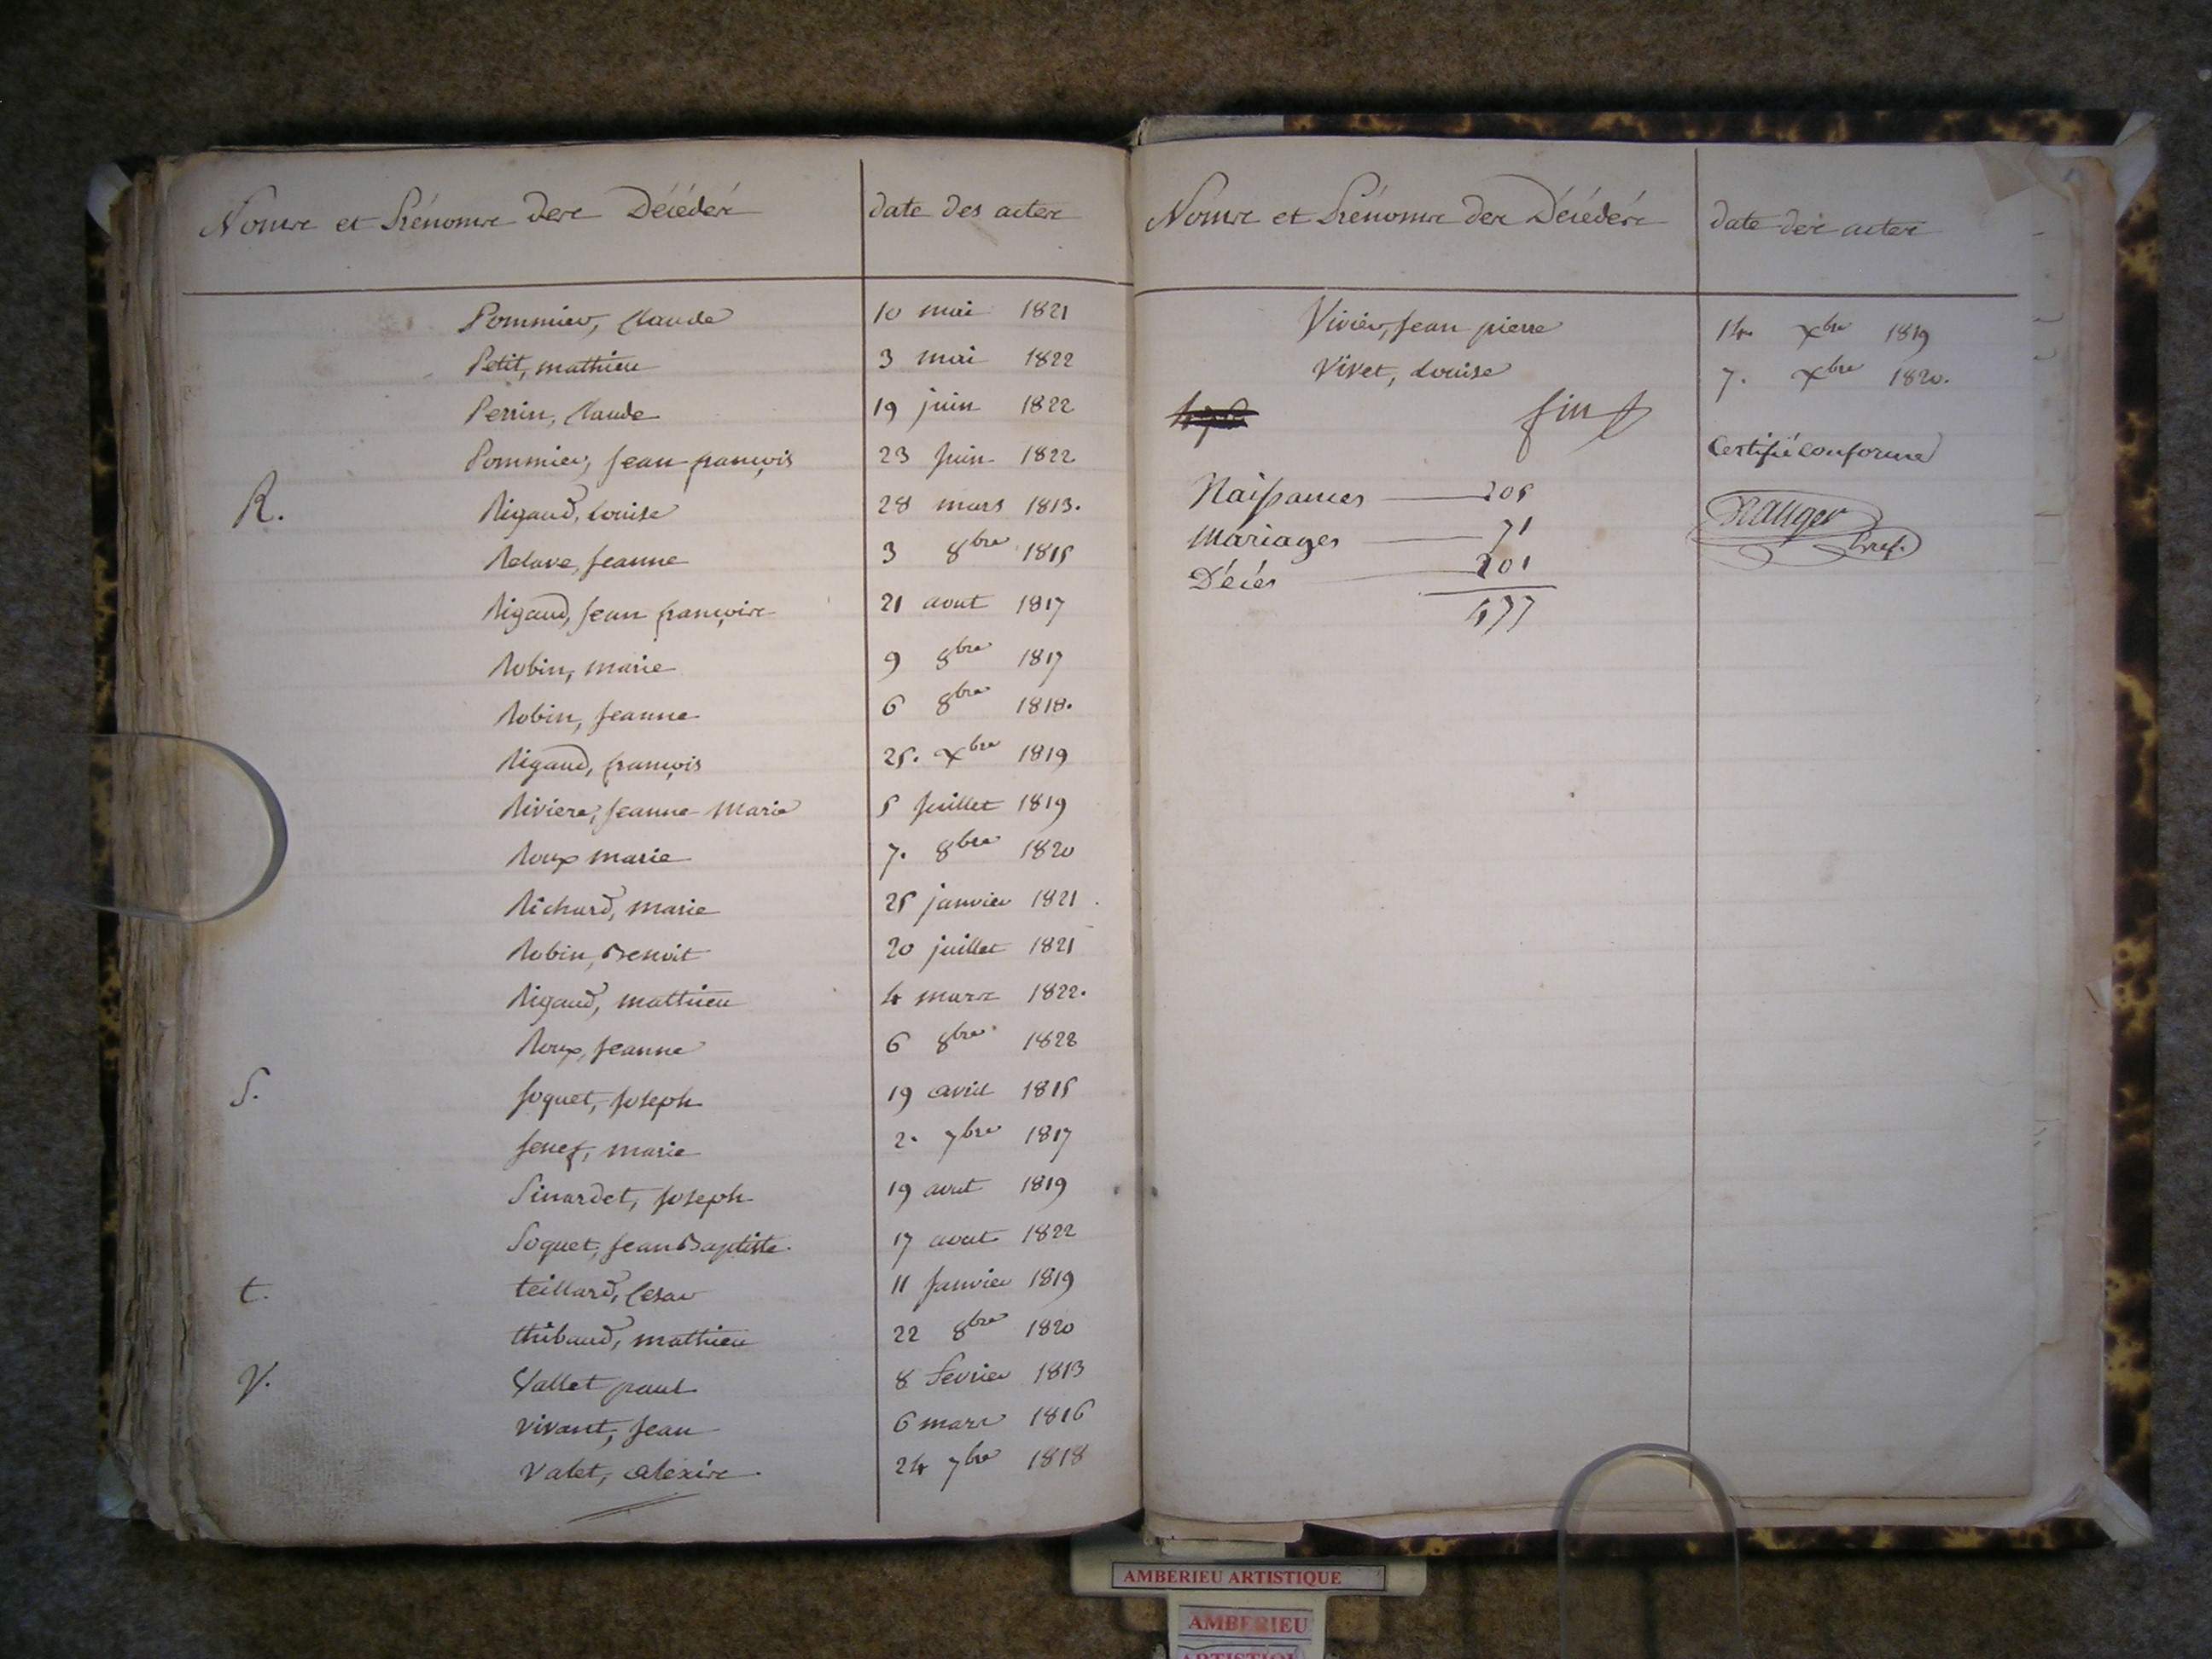 Noms et Prénoms des Décédés date des actes
Pommier, Claude 10 mai 1821
Petit, mathieu 3 mai 1822
Perrin, Claude 19 juin 1822
Pommier, Jean françois 23 Juin 1822
R. Rigaud, Louise 28 mars 1813.
Relave, Jeanne 3 8bre 1815
Rigaud, Jean françois 21 aout 1817
Robin, marie 9 8bre 1817
Robin, Jeanne 6 8bre 1818.
Rigaud, françois 25. Xbre 1819
Riviere, Jeanne Marie 5 Juillet 1819
Roux marie 7. 8bre 1820
Richard, marie 25 janvier 1821
Robin, Benoit 20 juillet 1821
Rigaud, mathieu 4 mars 1822.
Roux, Jeanne 6 8bre 1822
S. Soquet, Joseph 19 avril 1815
marie 2. 7bre 1817
Sinardet, Joseph 19 aout 1819
Soquet, Jean Baptiste 17 aout 1822
t. teillard, Cesar 11 Janvier 1819
thibaud, mathieu 22 8bre 1820
V. Vallet paul 8 fevrier 1813
vivant, Jean 6 mars 1816
Valet, alexis 24 7bre 1818
Noms et Prénoms des Décédés date des actes
Vivier, Jean pierre 14 Xbre 1819
Vivet, Louise 7. Xbre 1820.
fin
Certifié conforme
Naissances 205
Mariages 71
Décès 201
477
AMBERIEU ARTISTIQUE
AMBERIEU
ARTISTIQUE